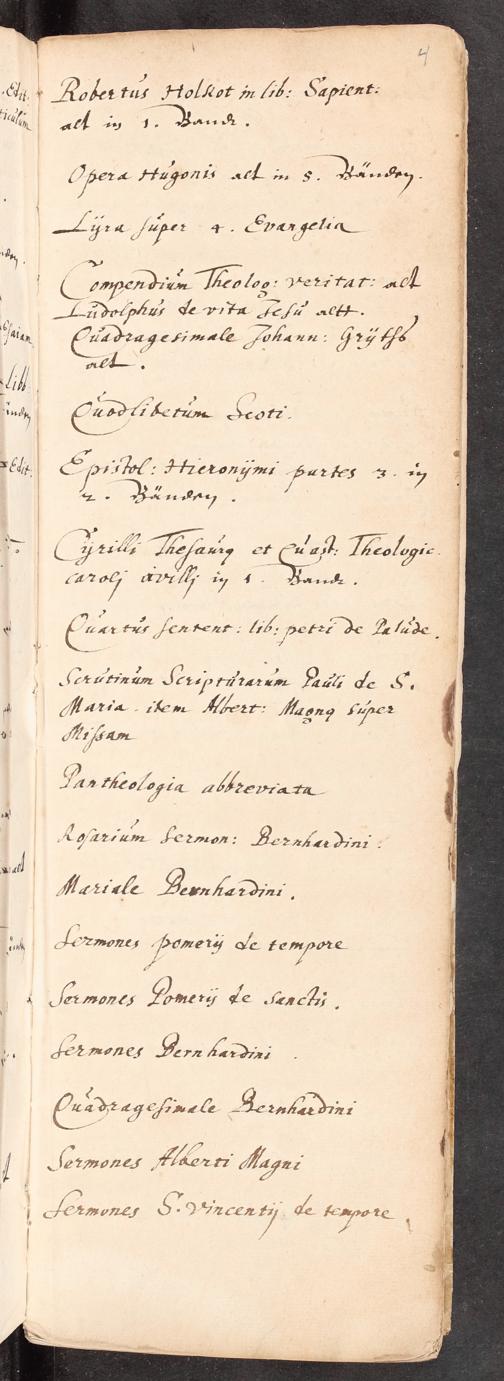 4
Robertus Holkot in lib: Sapient:
alt in 1. Bandt.
Opera Hugonis alt in 5. Bänden.
Lÿra súper 4. Evangelia
Compendiúm Theolog: veritat: alt
Ludolphús de vita Jesú altt.
Quadragesimale Johann: Grÿtsß
alt.
Quodlibetúm Scoti.
Epistol: Hieronÿmi partes 3. in
2. Bänden.
Cÿrilli Thesaurg et Quæst: Theologic.
carolj in 1. Bandt.
Quartús sentent: lib: petri de Palúde.
Scrutinúm Scriptúrarúm Pauli de S.
Maria. item Albert: Magng súper
Missam
Pantheologia abbreviata
Rosariúm Sermon: Bernhardini.
Mariale Bernhardini.
Sermones pomerij de tempore
Sermones Pomerij de sanctis.
Sermones Bernhardini.
Quadragesimale Bernhardini
Sermones Alberti Magni
Sermones S. vincentij de tempore.